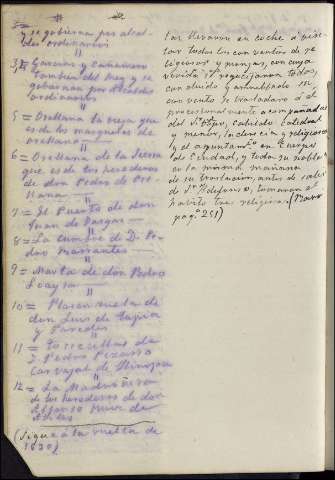 y se gobierna por alcal-
des ordinarios
3,4 = Garciaz y Cañamero
tambien del Rey y se
gobiernan por alcaldes
ordinarios
5 = Orellana la vieja que
es de los marqueses de
orellana
6 = Orellana de la Sierra
que es de los herederos
de don Pedro de Ore-
llana
7 = El Puerto de don
Juan de Vargas
8 = La Cumbre de D. Pe-
dro Barrantes
9 = Marta de don Pedro
Loaysa
10 = Plasenzuela de
don Luis de Tapia
y Paredes
11 = Torrecillas de
D. Pedro Pizarro
Carvajal de Hinojosa
12 = La Madroñera
de los herederos de don
Alfonso
(Sigue á la vuelta de
1830)
las llevaron en coche á visi-
tar todos los conventos de re-
ligiosas y monjas, con cuya
venida se regocijaron todos,
concluido y
convento se trasladaron á él
procesionalmente acompañadas
del Sr. Obispo, cabildo Catedral
y menor, la clerecia y religiosos
y el ayuntamto en cuerpo
de Ciudad, y toda su nobleza
en la misma mañana
de su traslacion, antes de salir
de Sn Ildefonso, tomaron el
habito tres religiosas (
pag. 251)